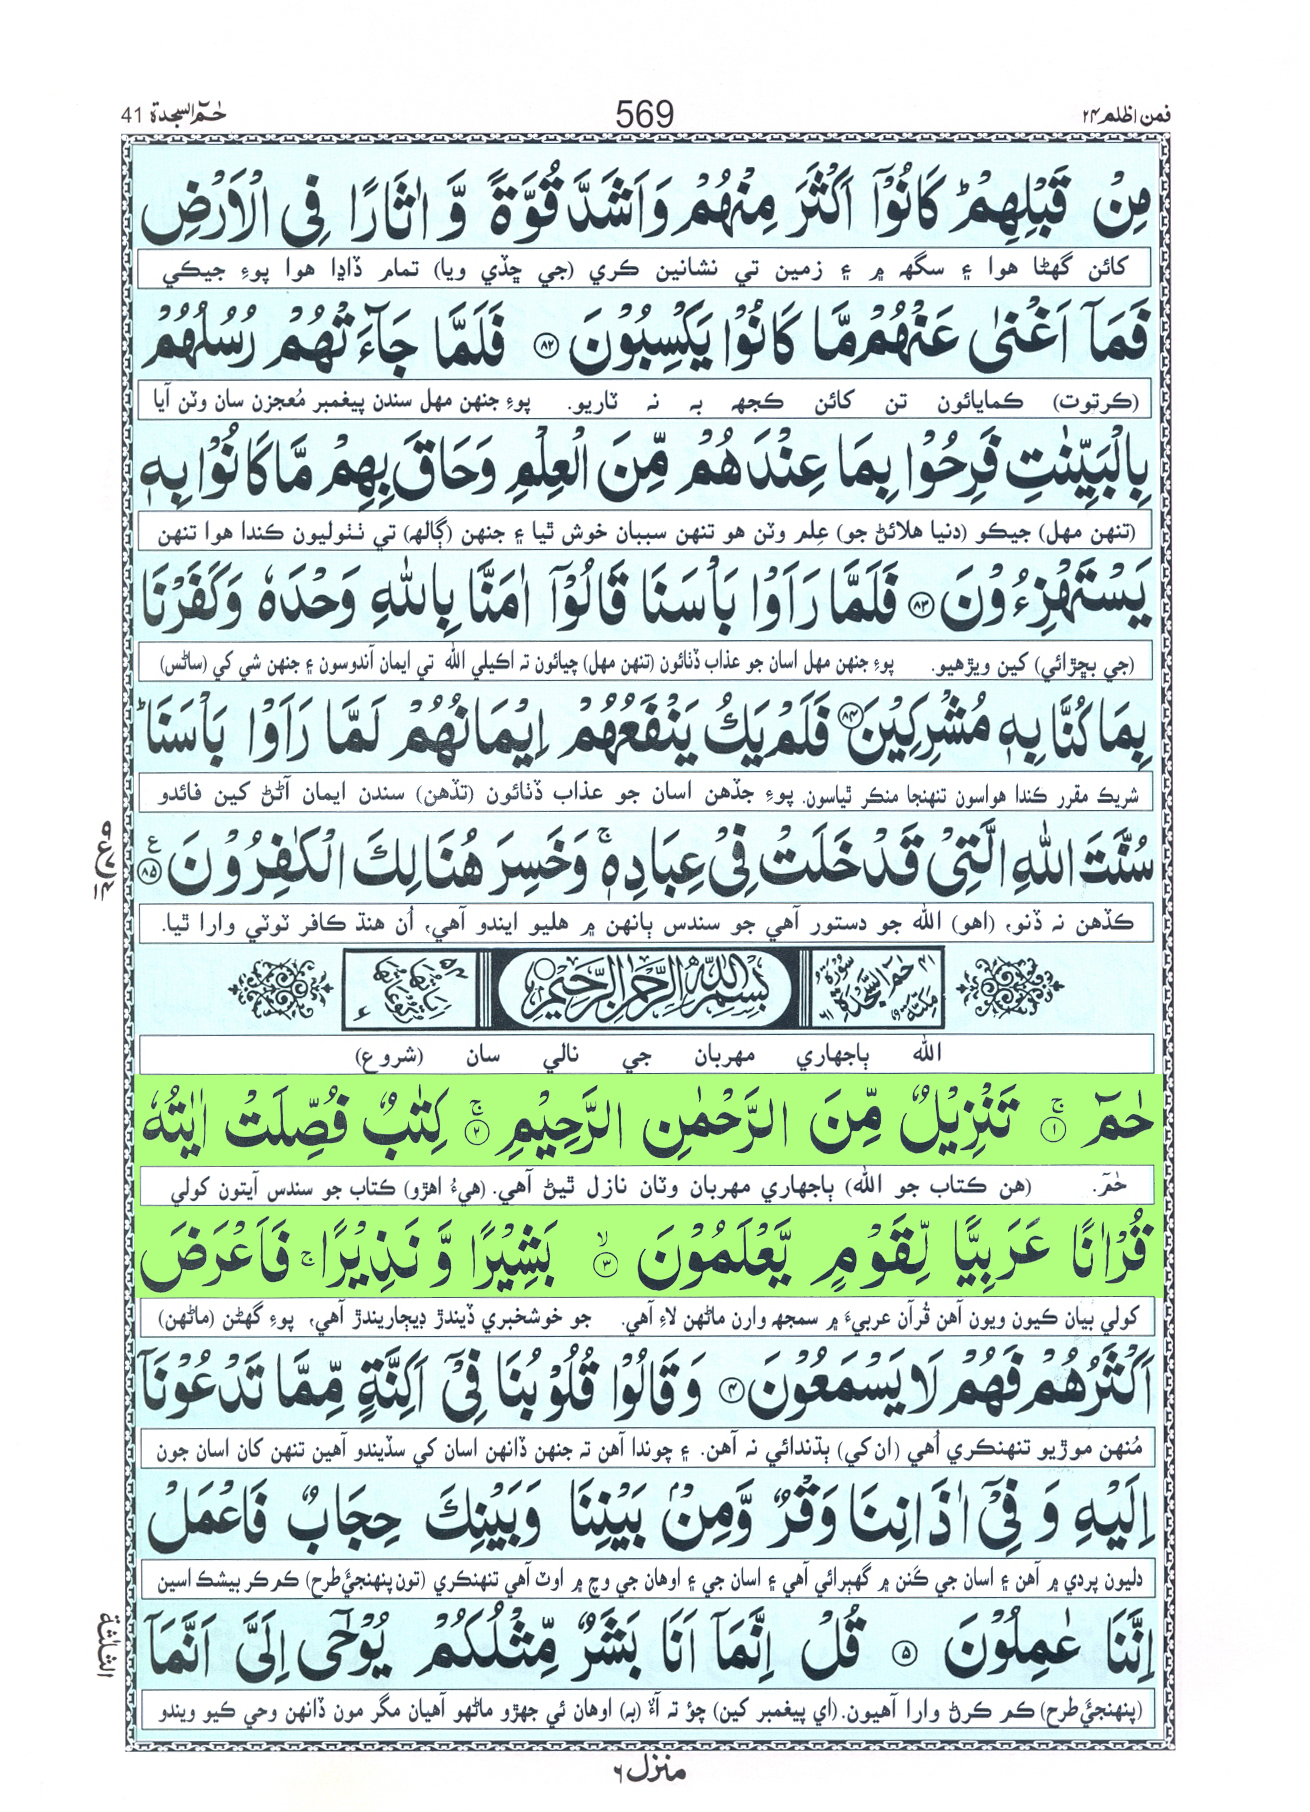 فمن اظلم ۲۴ 569 حٰمٓ السجدۃ 41
مِنْ قَبْلِهِمْ ؕ كَانُوْۤا اَكْثَرَ مِنْهُمْ وَاَشَدَّ قُوَّةً وَّ اٰثَارًا فِی الْاَرْضِ
کائن گھڻا هوا ۽ سگهہ ۾ ۽ زمين تي نشانين ڪري (جي ڇڏي ويا) تمام ڏاڍا هوا پوءِ جيڪي
فَمَاۤ اَغْنٰی عَنْهُمْ مَّا كَانُوْا یَكْسِبُوْنَ ﴿۸۲﴾ فَلَمَّا جَآءَتْهُمْ رُسُلُهُمْ
(ڪرتوت) ڪمايائون تن کائن ڪجهہ بہ نہ ٽاريو. پوءِ جنهن مهل سندن پيغمبر مُعجزن سان وٽن آيا
بِالْبَیِّنٰتِ فَرِحُوْا بِمَا عِنْدَهُمْ مِّنَ الْعِلْمِ وَحَاقَ بِهِمْ مَّا كَانُوْا بِهٖ
(تنهن مهل) جيڪو (دنيا هلائڻ جو) عِلم وٽن هو تنهن سببان خوش ٿيا ۽ جنهن (ڳالهہ) تي ٺٺوليون ڪندا هوا تنهن
یَسْتَهْزِءُوْنَ ﴿۸۳﴾ فَلَمَّا رَاَوْا بَاْسَنَا قَالُوْۤا اٰمَنَّا بِاللّٰهِ وَحْدَهٗ وَكَفَرْنَا
(جي بڇڙائي) کين ويڙهيو. پوءِ جنهن مهل اسان جو عذاب ڏٺائون (تنهن مهل) چيائون تہ اڪيلي الله تي ايمان آندوسون ۽ جنهن شي کي (ساڻس)
بِمَا كُنَّا بِهٖ مُشْرِكِیْنَ ﴿۸۴﴾ فَلَمْ یَكُ یَنْفَعُهُمْ اِیْمَانُهُمْ لَمَّا رَاَوْا بَاْسَنَا ؕ
شريڪ مقرر ڪندا هواسون تنهنجا منڪر ٿياسون. پوءِ جڏهن اسان جو عذاب ڏٺائون (تڏهن) سندن ايمان آڻڻ کين فائدو
سُنَّتَ اللّٰهِ الَّتِیْ قَدْ خَلَتْ فِیْ عِبَادِهٖ ۚ وَخَسِرَ هُنَالِكَ الْكٰفِرُوْنَ ﴿۸۵﴾ ع
ڪڏهن نہ ڏنو، (اهو) الله جو دستور آهي جو سندس ٻانهن ۾ هليو ايندو آهي، اُن هنڌ ڪافر ٽوٽي وارا ٿيا.
۴۱ سُوْرَۃُ حٰمٓ السَّجْدَۃِ مَكِّیَّۃٌ ۶۱ بِسْمِ اللّٰهِ الرَّحْمٰنِ الرَّحِیْمِ اٰیَاتُهَا ۵۴ رُكُوْعَاتُهَا ۶
الله ٻاجهاري مهربان جي نالي سان (شروع)
حٰمٓ ۚ﴿۱﴾ تَنْزِیْلٌ مِّنَ الرَّحْمٰنِ الرَّحِیْمِ ۚ﴿۲﴾ كِتٰبٌ فُصِّلَتْ اٰیٰتُهٗ
حٰمٓ. (هن ڪتاب جو الله) ٻاجهاري مهربان وٽان نازل ٿيڻ آهي. (هيءُ اهڙو) ڪتاب جو سندس آيتون کولي
قُرْاٰنًا عَرَبِیًّا لِّقَوْمٍ یَّعْلَمُوْنَ ۙ﴿۳﴾ بَشِیْرًا وَّ نَذِیْرًا ۚ فَاَعْرَضَ
کولي بيان ڪيون ويون آهن قُرآن عربيءَ ۾ سمجهہ وارن ماڻهن لاءِ آهي. جو خوشخبري ڏيندڙ ڊيڄاريندڙ آهي، پوءِ گهڻن (ماڻهن)
اَكْثَرُهُمْ فَهُمْ لَا یَسْمَعُوْنَ ﴿۴﴾ وَ قَالُوْا قُلُوْبُنَا فِیْۤ اَكِنَّةٍ مِّمَّا تَدْعُوْنَاۤ
مُنهن موڙيو تنهنڪري اُهي (ان کي) ٻڌندائي نہ آهن. ۽ چوندا آهن تہ جنهن ڏانهن اسان کي سڏيندو آهين تنهن کان اسان جون
اِلَیْهِ وَ فِیْۤ اٰذَانِنَا وَقْرٌ وَّمِنْۢ بَیْنِنَا وَبَیْنِكَ حِجَابٌ فَاعْمَلْ
دليون پردي ۾ آهن ۽ اسان جي ڪَنن ۾ گهٻرائي آهي ۽ اسان جي ۽ اوهان جي وچ ۾ اوٽ آهي تنهنڪري (تون پنهنجيءَ طرح) ڪم ڪر بيشڪ اسين
اِنَّنَا عٰمِلُوْنَ ﴿۵﴾ قُلْ اِنَّمَاۤ اَنَا بَشَرٌ مِّثْلُكُمْ یُوْحٰۤی اِلَیَّ اَنَّمَاۤ
(پنهنجيءَ طرح) ڪم ڪرڻ وارا آهيون. (اي پيغمبر کين) چؤ تہ آءٌ (بہ) اوهان ئي جهڙو ماڻهو آهيان مگر مون ڏانهن وحي ڪيو ويندو
الثلٰثۃ
منزل ۶